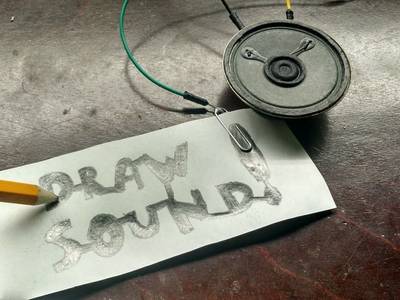 DRAW
SOUND!